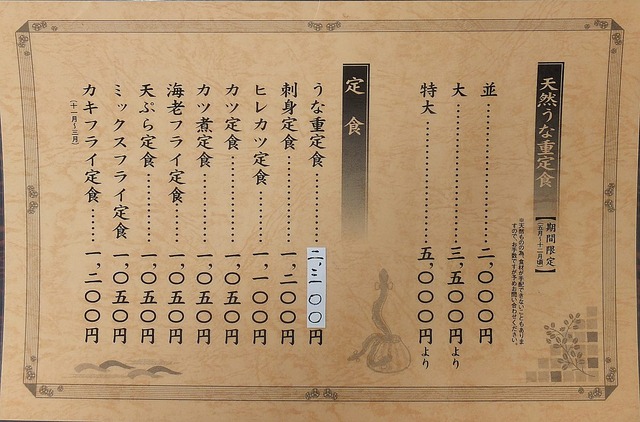 天然うな重定食
【期間限定】
(五月〜十二月頃)
※天然ものの為、食材が手配できないこともありま
すので、お手数ですが予めお問い合わせください。
並…………………二,〇〇〇円
大…………………三,五〇〇円より
特大………………五,〇〇〇円より
定食
うな重定食………二,三〇〇円
刺身定食…………一,二〇〇円
ヒレカツ定食……一,一〇〇円
カツ定食…………一,〇五〇円
カツ煮定食………一,〇五〇円
海老フライ定食…一,〇五〇円
天ぷら定食………一,〇五〇円
ミックスフライ定食 一,〇五〇円
カキフライ定食……一,二〇〇円
(十一月〜三月)